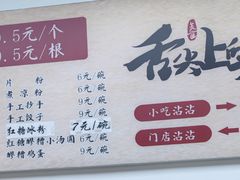 .5元/个
.5元/根
片 粉 6元/碗
煮凉粉 6元/碗
手工抄手 9元/碗
手工饺子 9元/碗
红糖冰粉 7元/碗
红糖醪糟小汤圆 6元/碗
醪糟鸡蛋 9元/碗
舌尖上
小吃站站
门店站站